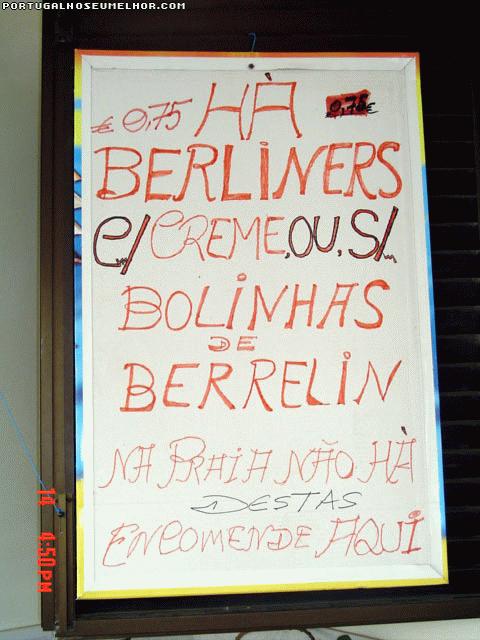 PORTUGALNOSEUMELHOR.COM
€ 0,75 HÀ 0,75€
BERLINERS
C/ CREME, OU, S/...
BOLINHAS
DE
BERRELIN
NA PRAIA NÃO HÀ
DESTAS
ENCOMENDE AQUI
14 4:50 PM